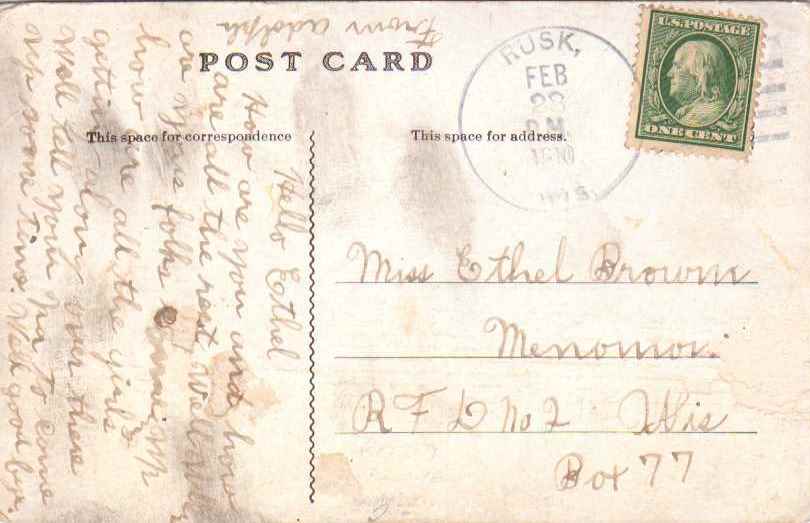 POST CARD
This space for correspondence
This space for address.
RUSK,
FEB
28
P.M.
1910
WIS.
U.S. POSTAGE
ONE CENT
Hello Ethel
How are you and how
are all the rest. Well
are your folks
how are all the girls
getting along over there
Well tell your Pa to come
up some time. Well good bye.
From adolph
Miss Ethel Browne
Menomoni
R F D No 2 Wis
Box 77